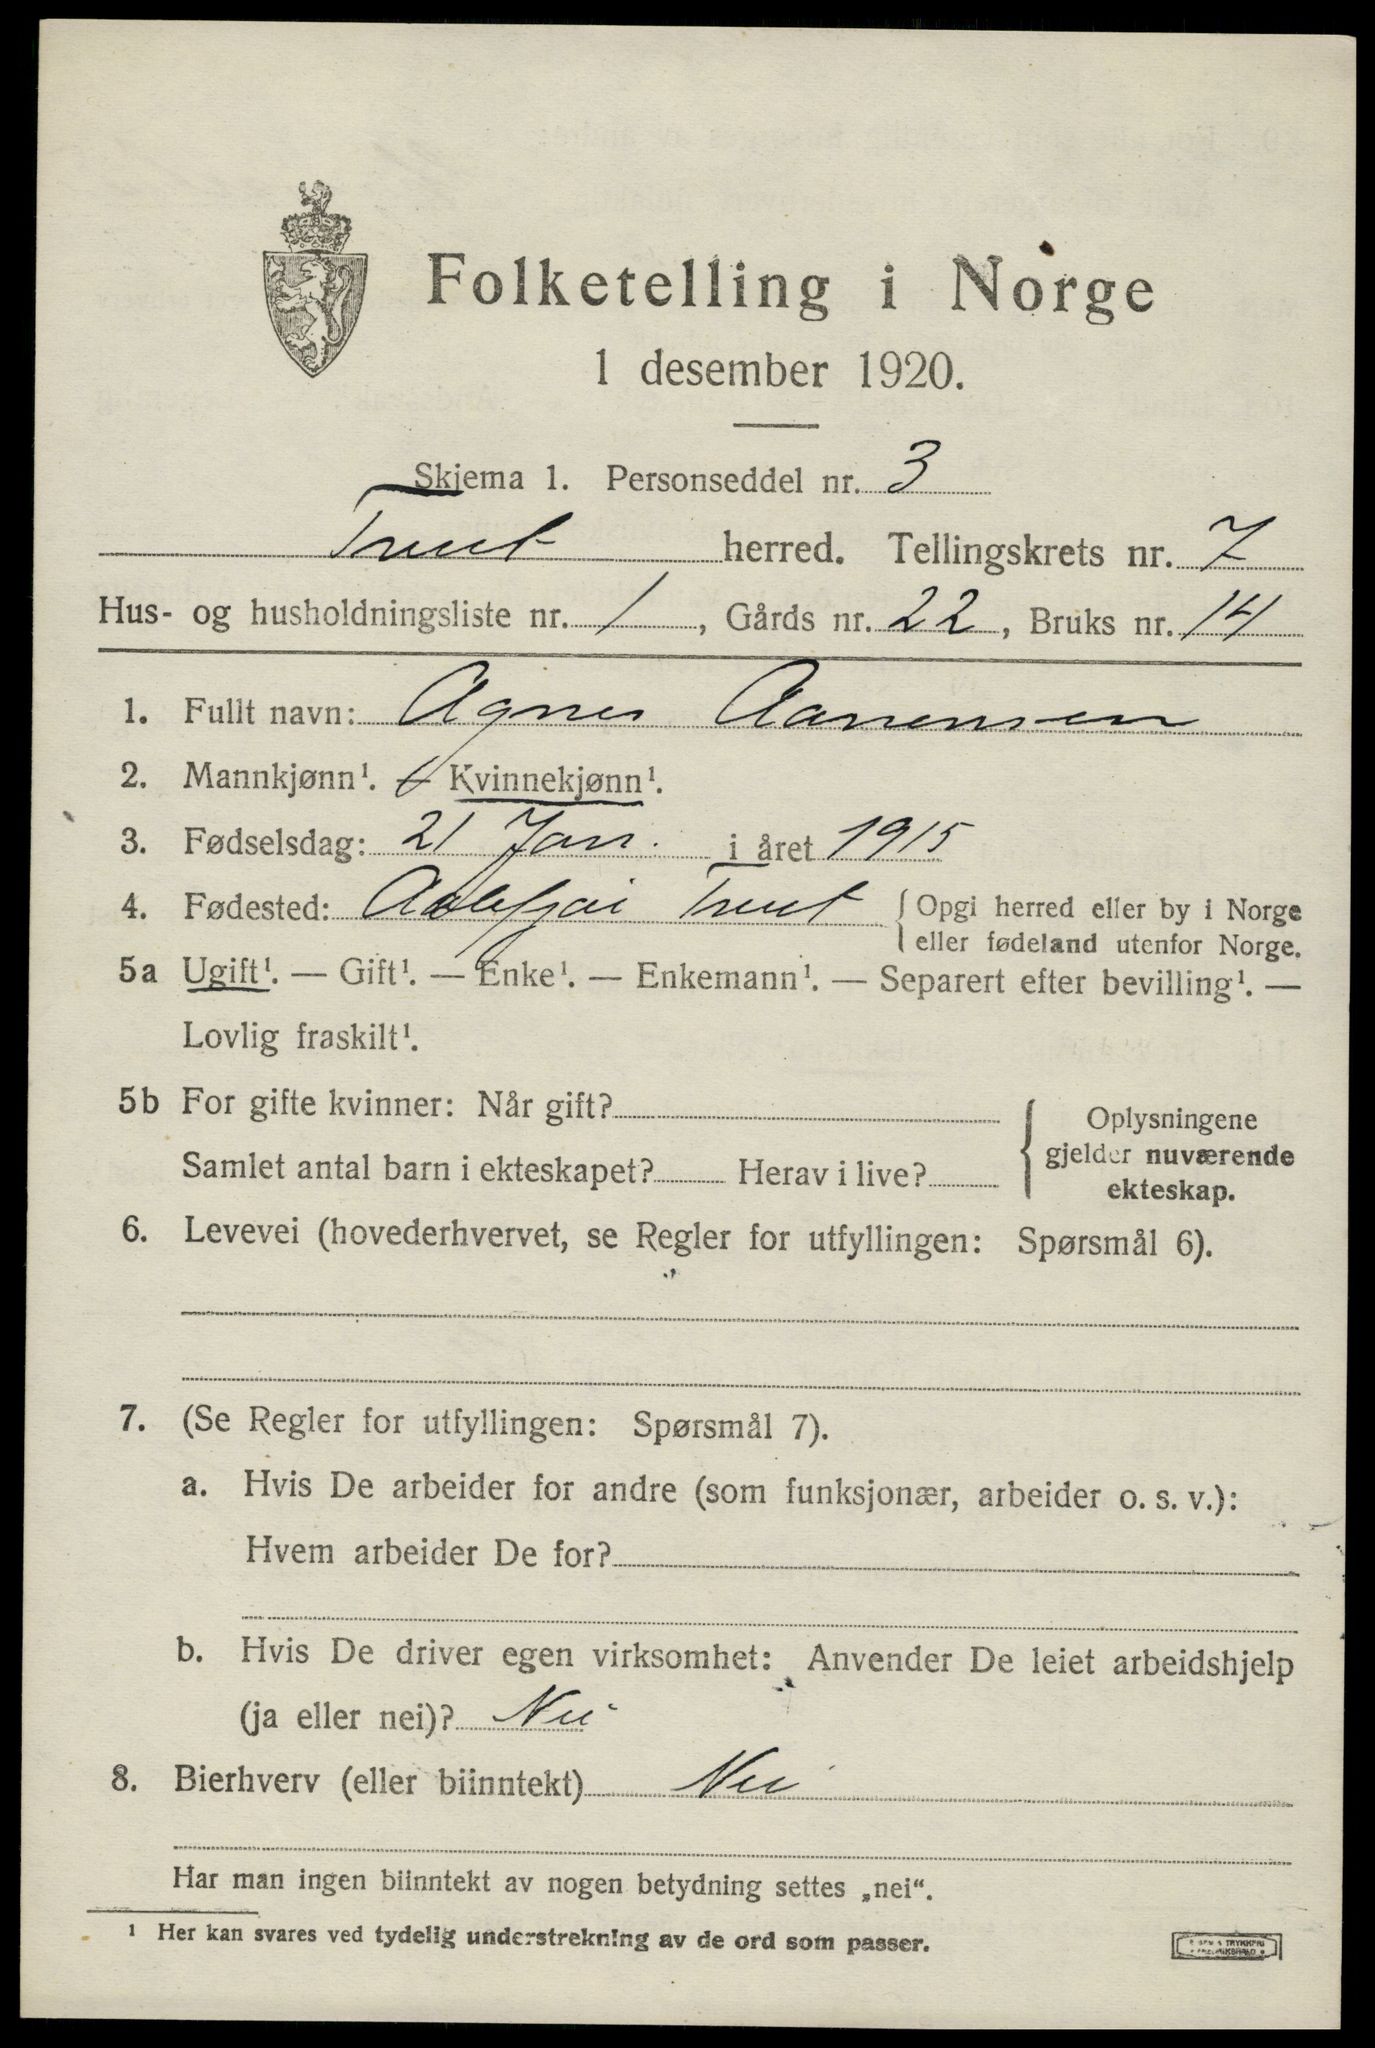 Folketelling i Norge
1 desember 1920.
Skjema 1. Personseddel nr. 3
Tveit herred. Tellingskrets nr. 7
Hus- og husholdningsliste nr. 1, Gårds nr. 22, Bruks nr. 14
1. Fullt navn: Agnes Aanensen
2. Mannkjønn¹. – Kvinnekjønn¹.
3. Fødselsdag: 21 Jan. i året 1915
4. Fødested: Tveit { Opgi herred eller by i Norge
eller fødeland utenfor Norge.
5a Ugift¹. — Gift¹. — Enke¹. — Enkemann¹. — Separert efter bevilling¹. —
Lovlig fraskilt¹.
5b For gifte kvinner: Når gift?
Samlet antal barn i ekteskapet? Herav i live?
{ Oplysningene
gjelder nuværende
ekteskap.
6. Levevei (hovederhvervet, se Regler for utfyllingen: Spørsmål 6).
7. (Se Regler for utfyllingen: Spørsmål 7).
a. Hvis De arbeider for andre (som funksjonær, arbeider o. s. v.):
Hvem arbeider De for?
b. Hvis De driver egen virksomhet: Anvender De leiet arbeidshjelp
(ja eller nei)? Nei
8. Bierhverv (eller biinntekt) Nei
Har man ingen biinntekt av nogen betydning settes „nei“.
¹ Her kan svares ved tydelig understrekning av de ord som passer.